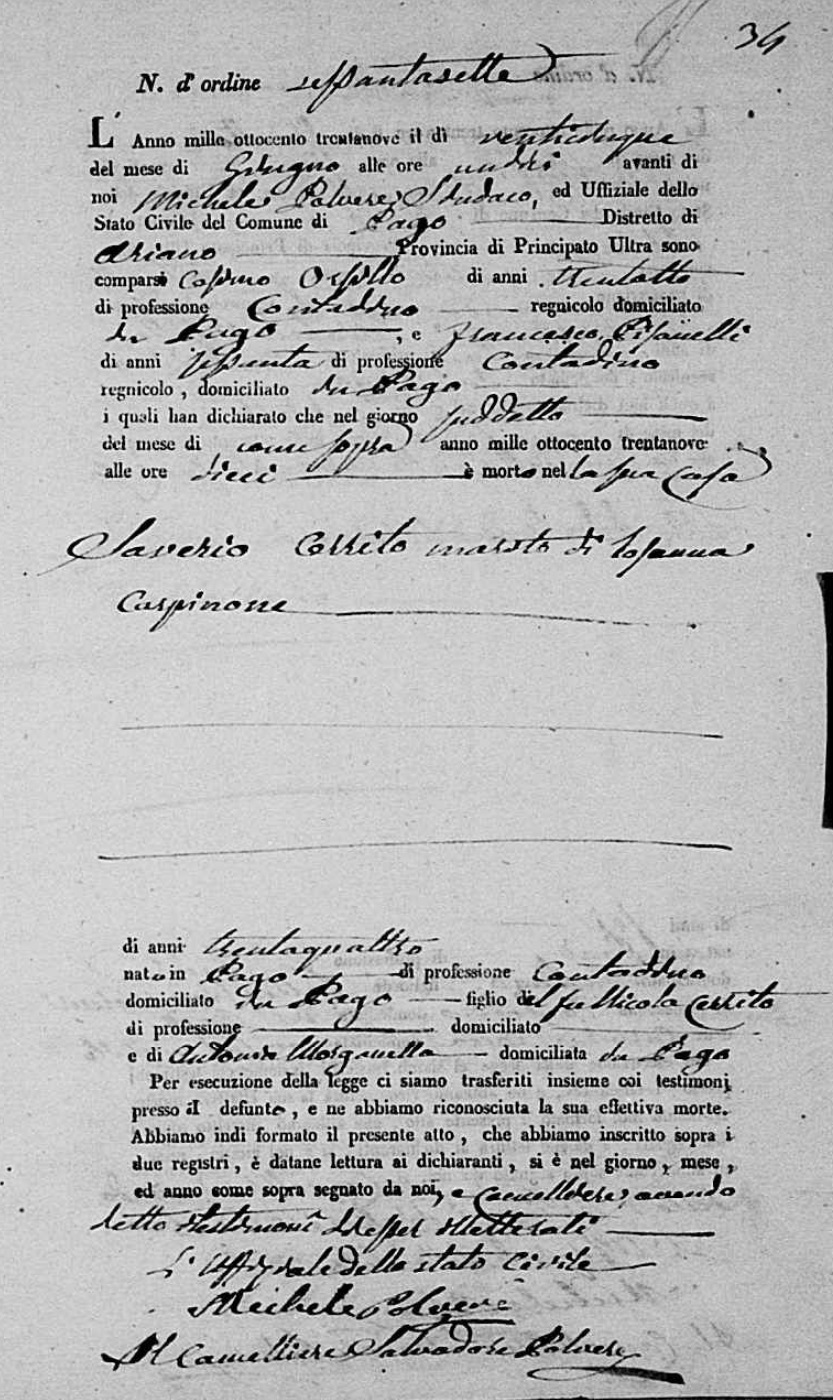 34
N. d'ordine sessantasette
L'Anno mille ottocento trentanove il dì venticinque
del mese di Giugno alle ore undici avanti di
noi Michele Polvere Sindaco, ed Uffiziale dello
Stato Civile del Comune di Pago Distretto di
Ariano Provincia di Principato Ultra sono
comparsi Cosimo Orsillo di anni trentotto
di professione Contadino regnicolo domiciliato
in Pago, e Francesco Pisanelli
di anni sessanta di professione Contadino
regnicolo, domiciliato in Pago
i quali han dichiarato che nel giorno suddetto
del mese di come sopra anno mille ottocento trentanove
alle ore dieci è morto nella sua Casa
Saverio Cerrito marito di Osanna
Carpinone
di anni trentaquattro
nato in Pago di professione Contadino
domiciliato in Pago figlio del fu Nicola Cerrito
di professione domiciliato
e di Antonia Morganella domiciliata in Pago
Per esecuzione della legge ci siamo trasferiti insieme coi testimonj
presso il defunto, e ne abbiamo riconosciuta la sua effettiva morte.
Abbiamo indi formato il presente atto, che abbiamo inscritto sopra i
due registri, è datane lettura ai dichiaranti, si è nel giorno, mese,
ed anno come sopra segnato da noi, e Cancelliere, avendo
detto i testimoni di esser illetterati
L'Uffiziale dello stato Civile
Michele Polvere
Il Cancelliere Salvadore Polvere